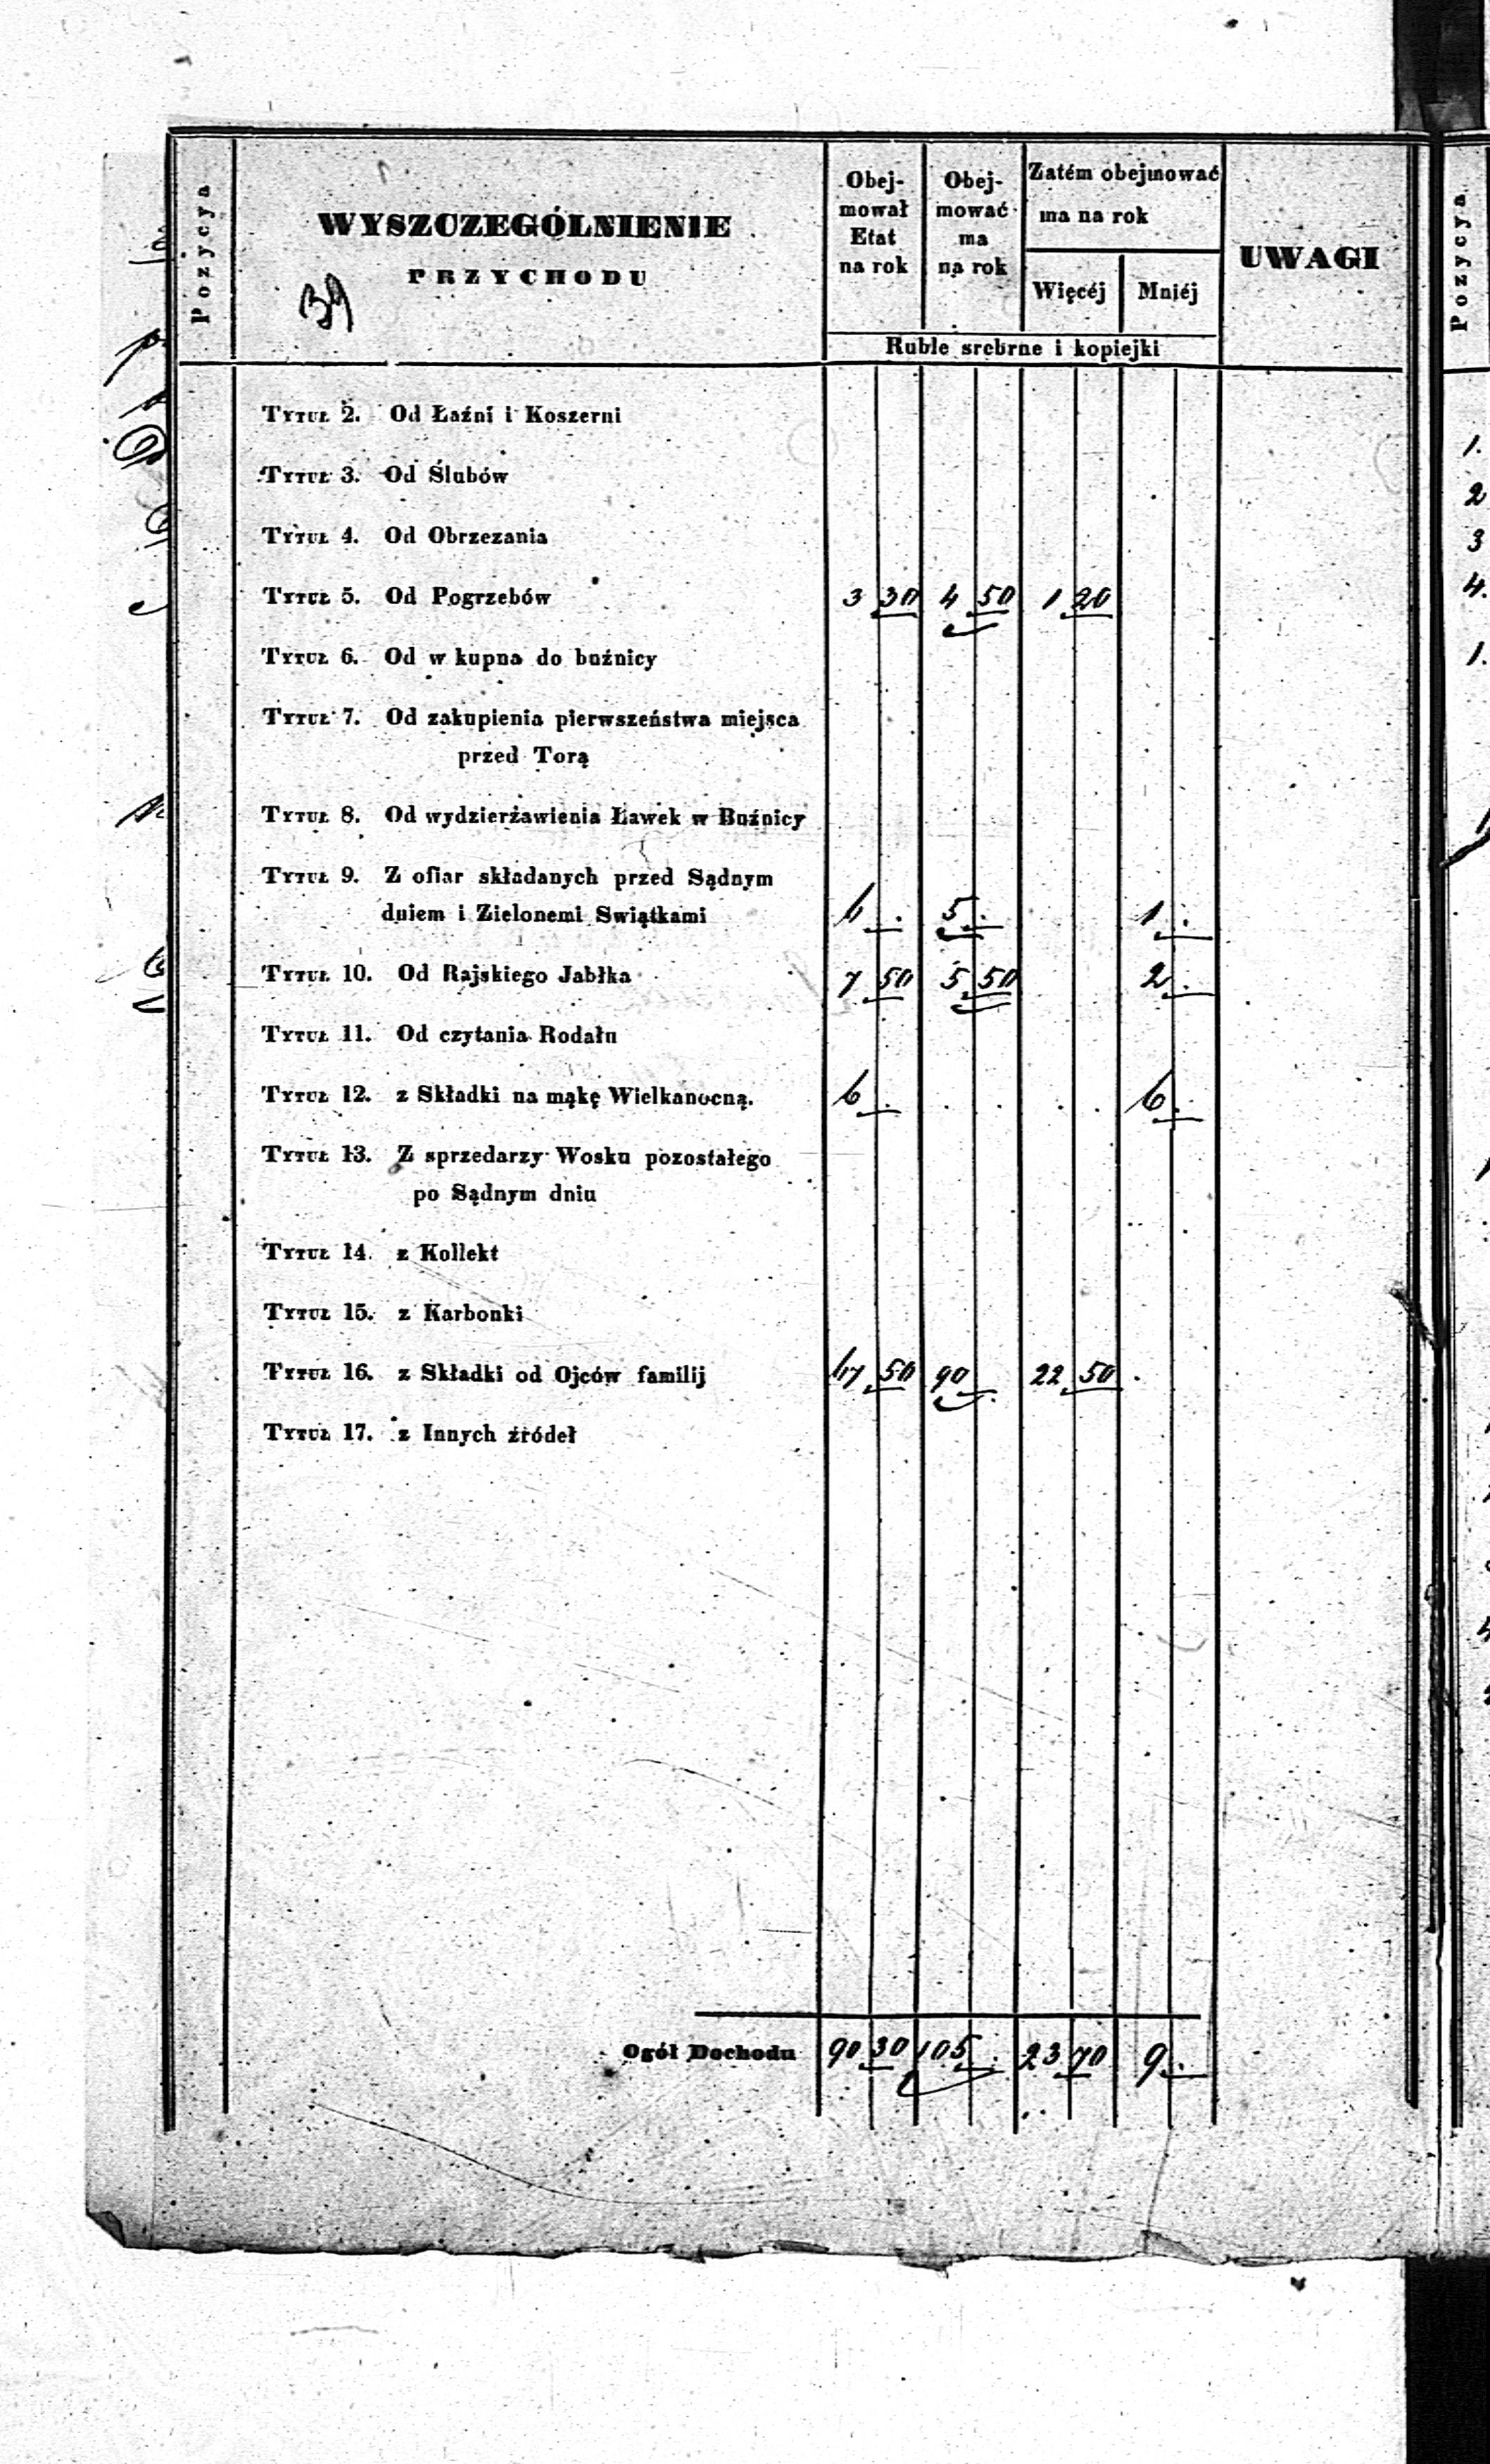 Pozycya
WYSZCZEGÓLNIENIE
PRZYCHODU
39
Obej-
mował
Etat
na rok
Obej-
mować
ma
na rok
Zatém obejmować
ma na rok
Więcéj Mniéj
Ruble srebrne i kopiejki
UWAGI
Pozycya
Tytuł 2. Od Łaźni i Koszerni
Tytuł 3. Od Ślubów
Tytuł 4. Od Obrzezania
Tytuł 5. Od Pogrzebów 3 30 4 50 1 20
Tytuł 6. Od w kupna do buźnicy
Tytuł 7. Od zakupienia pierwszeństwa miejsca
przed Torą
Tytuł 8. Od wydzierżawienia Ławek w Buźnicy
Tytuł 9. Z ofiar składanych przed Sądnym
dniem i Zielonemi Swiątkami 6 . 5 . 1 .
Tytuł 10. Od Rajskiego Jabłka 7 50 5 50 2 .
Tytuł 11. Od czytania Rodału
Tytuł 12. z Składki na mąkę Wielkanocną. 6 . . . . . 6 .
Tytuł 13. Z sprzedarzy Wosku pozostałego
po Sądnym dniu
Tytuł 14. z Kollekt
Tytuł 15. z Karbonki
Tytuł 16. z Składki od Ojców familij 67 50 90 . 22 50 .
Tytuł 17. z Innych źródeł
Ogół Dochodu 90 30 105 . 23 70 9 .
1.
2
3
4.
1.